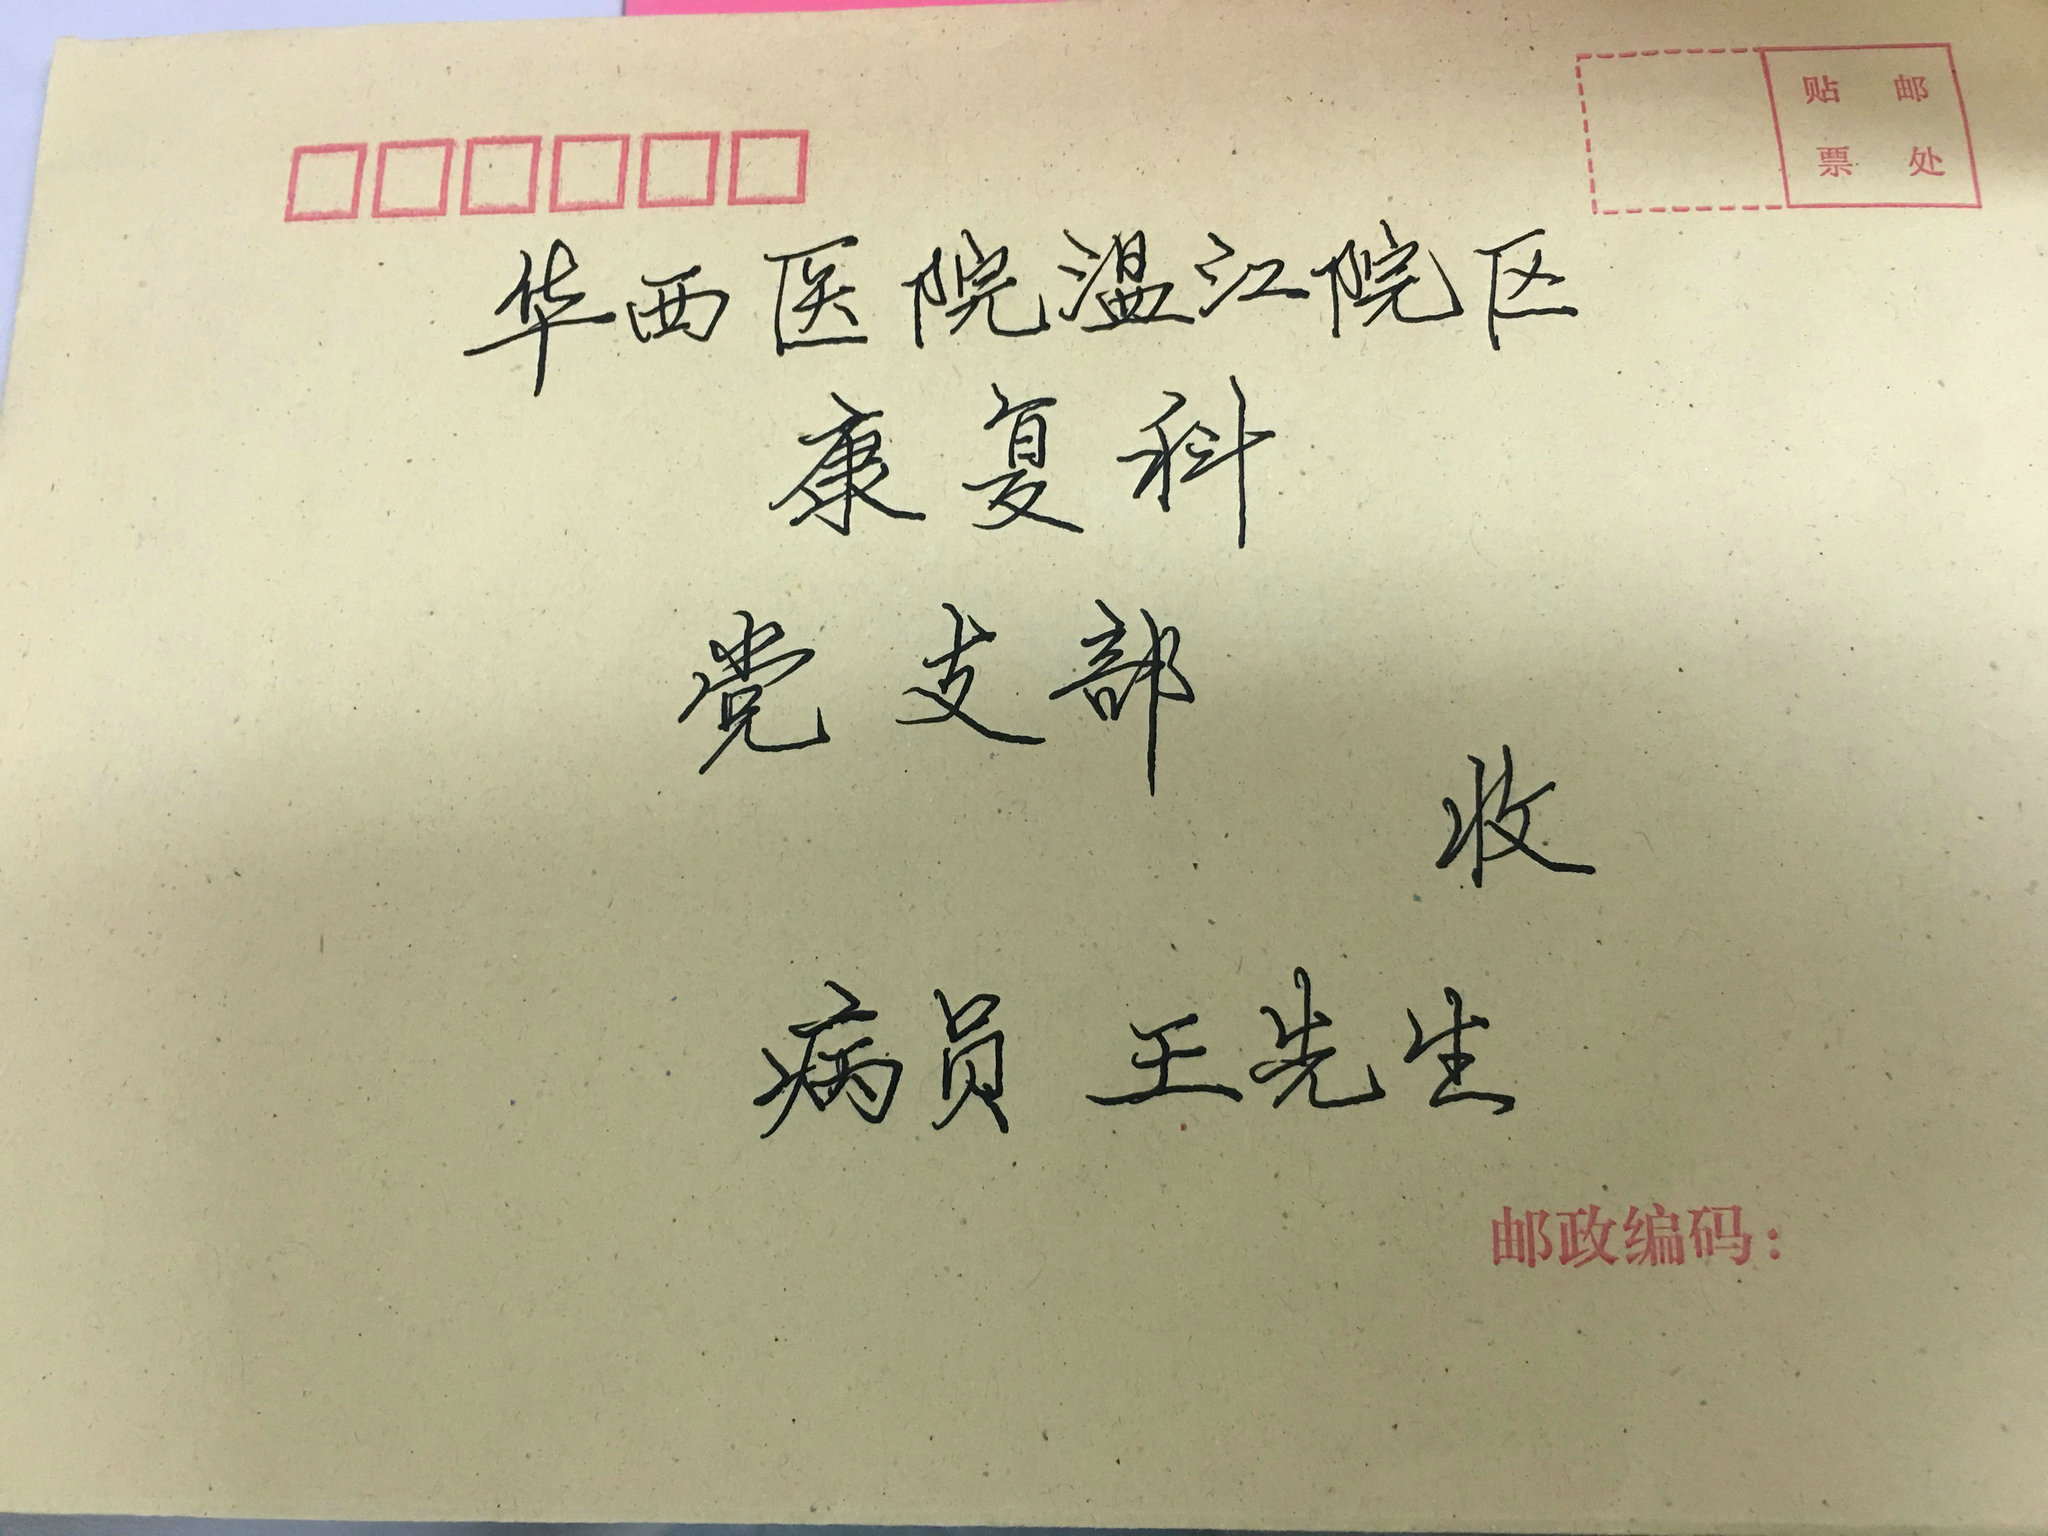 贴 邮
票 处
华西医院温江院区
康复科
党支部
收
病员 王先生
邮政编码：